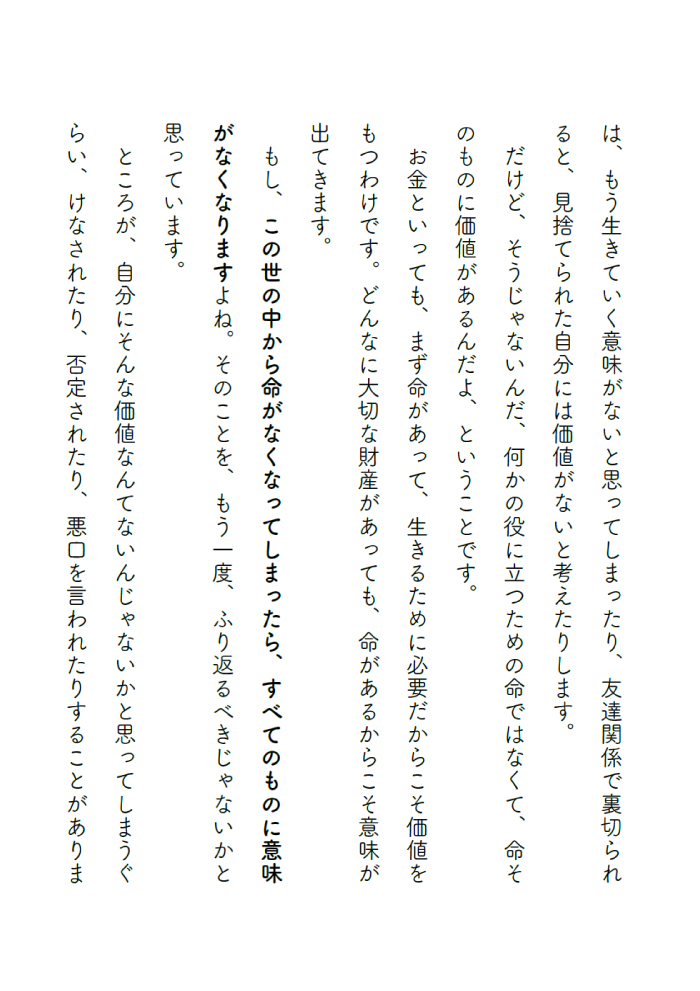 は、もう生きていく意味がないと思ってしまったり、友達関係で裏切られ
ると、見捨てられた自分には価値がないと考えたりします。
だけど、そうじゃないんだ、何かの役に立つための命ではなくて、命そ
のものに価値があるんだよ、ということです。
お金といっても、まず命があって、生きるために必要だからこそ価値を
もつわけです。どんなに大切な財産があっても、命があるからこそ意味が
出てきます。
もし、この世の中から命がなくなってしまったら、すべてのものに意味
がなくなりますよね。そのことを、もう一度、ふり返るべきじゃないかと
思っています。
ところが、自分にそんな価値なんてないんじゃないかと思ってしまうぐ
らい、けなされたり、否定されたり、悪口を言われたりすることがありま